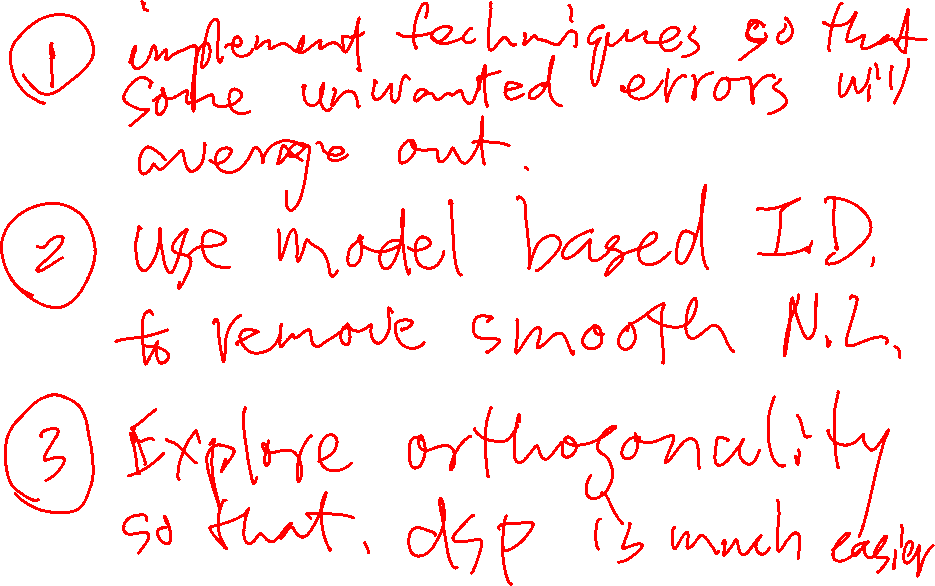 ① implement techniques so that
some unwanted errors will
average out.
② use model based I.D.
to remove smooth N.L.
③ Explore orthogonality
so that, dsp is much easier